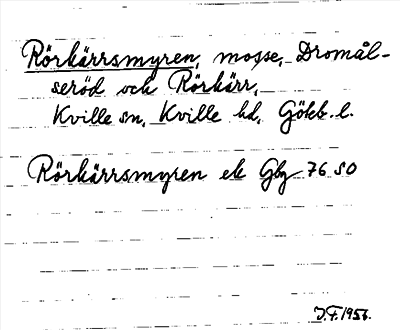 Rörkärrsmyren, mosse, Dromål-
seröd och Rörkärr,
Kville sn, Kville hd, Gökb. l.
Rörkärrsmyren ek Gbg 76 SO
J.F. 1956.